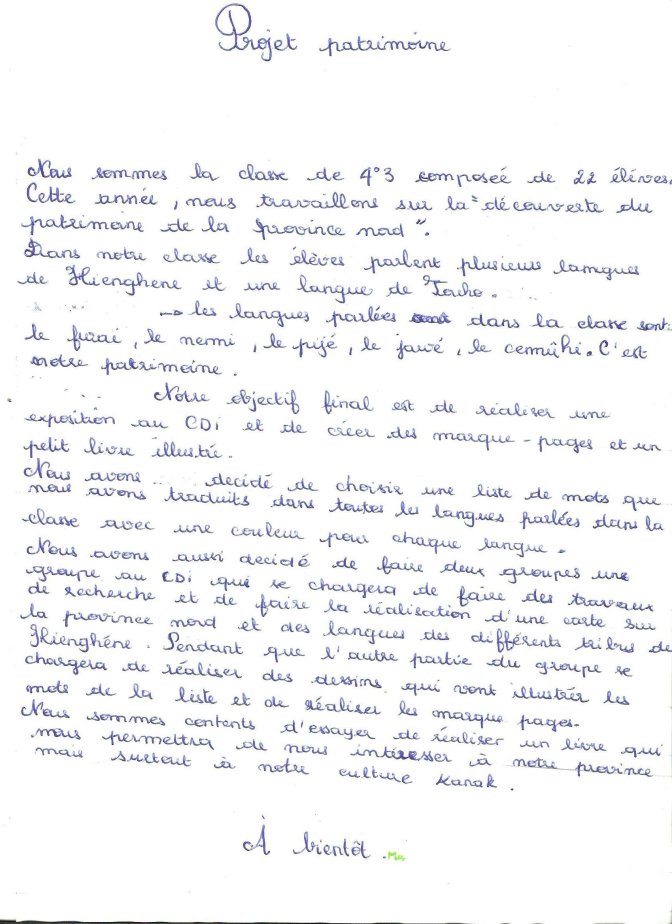 Projet patrimoine
Nous sommes la classe de 4°3 composée de 22 éléves.
Cette année, nous travaillons sur la "découverte du
patrimoine de la province nord".
Dans notre classe les élèves parlent plusieurs langues
de Hienghene et une langue de Touho.
→ les langues parlées dans la classe sont:
le fwai, le nemi, le pijé, le jawé, le cemûhi. C'est
notre patrimoine.
Notre objectif final est de réaliser une
exposition au CDi et de créer des marque-pages et un
petit livre illustré.
Nous avons décidé de choisir une liste de mots que
nous avons traduits dans toutes les langues parlées dans la
classe avec une couleur pour chaque langue.
Nous avons aussi decidé de faire deux groupes une
groupe au CDi qui se chargera de faire des travaux
de recherche et de faire la réalisation d'une carte sur
la province nord et des langues des différents tribus de
Hienghéne. Pendant que l'autre partie du groupe se
chargera de réaliser des dessins qui vont illustrér les
mots de la liste et de réaliser les marque pages.
Nous sommes contents d'essayer de réaliser un livre qui
nous permettra de nous intéresser à notre province
mais surtout à notre culture Kanak.
À bientôt.